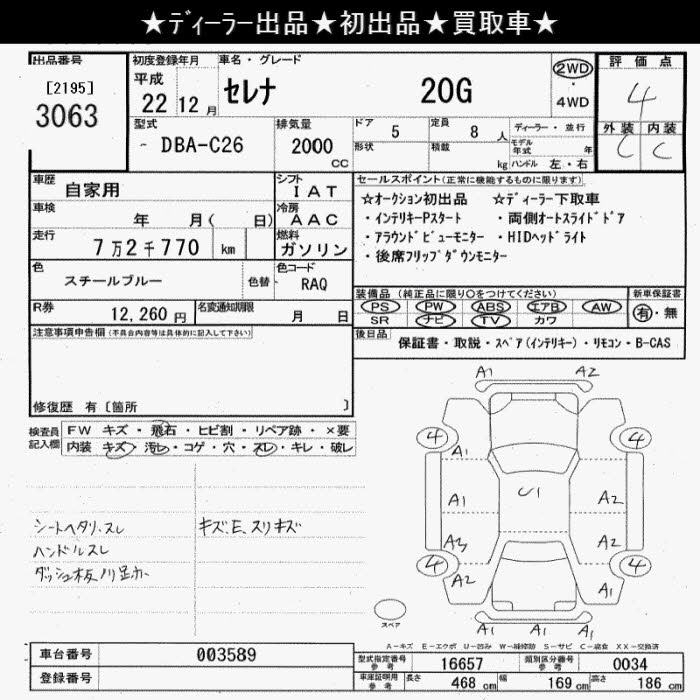 ★ディーラー出品★初出品★買取車★
出品番号
[2195]
3063
初度登録年月
平成
22 12 月
車名・グレード
セレナ 20G
2WD
・
4WD
評価点
4
外装 内装
C C
型式
- DBA-C26
排気量
2000
CC
ドア 5
形状
定員 8 人
積載 kg
ディーラー・並行
モデル
年式 年
ハンドル 左・右
車歴 自家用
シフト
IAT
車検 年 月( 日)
冷房
AAC
走行 7万2千770 km
燃料
ガソリン
色 スチールブルー
色替
色コード
RAQ
R券 12,260円
名変通知期限 月 日
セールスポイント(正常に機能するものに限ります)
☆オークション初出品 ☆ディーラー下取車
・インテリキーPスタート ・両側オートスライドドア
・アラウンドビューモニター ・HIDヘッドライト
・後席フリップダウンモニター
装備品 (純正品に限り○をつけてください)
PS PW ABS エアB AW
SR ナビ TV カワ
新車保証書
有・無
後日品 保証書・取説・スペア(インテリキー)・リモコン・B-CAS
注意事項申告欄(不具合内容等は具体的に記入して下さい)
修復歴 有 [箇所 ]
検査員
記入欄
FW キズ・飛石・ヒビ割・リペア跡・×要
内装 キズ・汚レ・コゲ・穴・スレ・キレ・破レ
シートヘタリ、スレ
ハンドルスレ
キズ、E、スリキズ
A1 A2
4 4
A1 A1
A1 U1 A2
A3 A2
4 4
A2 A1
A1 A1 A1
スペア
A-キズ E-エクボ U-凹み W-補修跡 S-サビ C-腐食 XX-交換済
車台番号 003589
登録番号
型式指定番号
参考
16657
類別区分番号
参考
0034
車庫証明用
参考
長さ 468 cm 幅 169 cm 高さ 186 cm